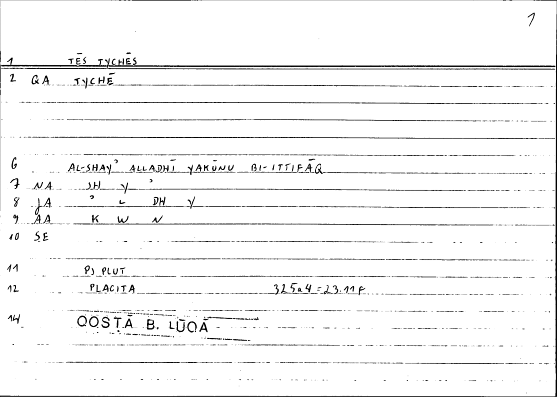 1
1 TĒS TYCHĒS
2 QA TYCHĒ
6 AL-SHAYʾ ALLADHĪ YAKŪNU BI-ITTIFĀQ
7 NA SH Y ʾ
8 JA ʾ L DH Y
9 AA K W N
10 SE
11 PS PLUT
12 PLACITA 325a4=23.11f
14 QOSTĀ B. LŪQĀ